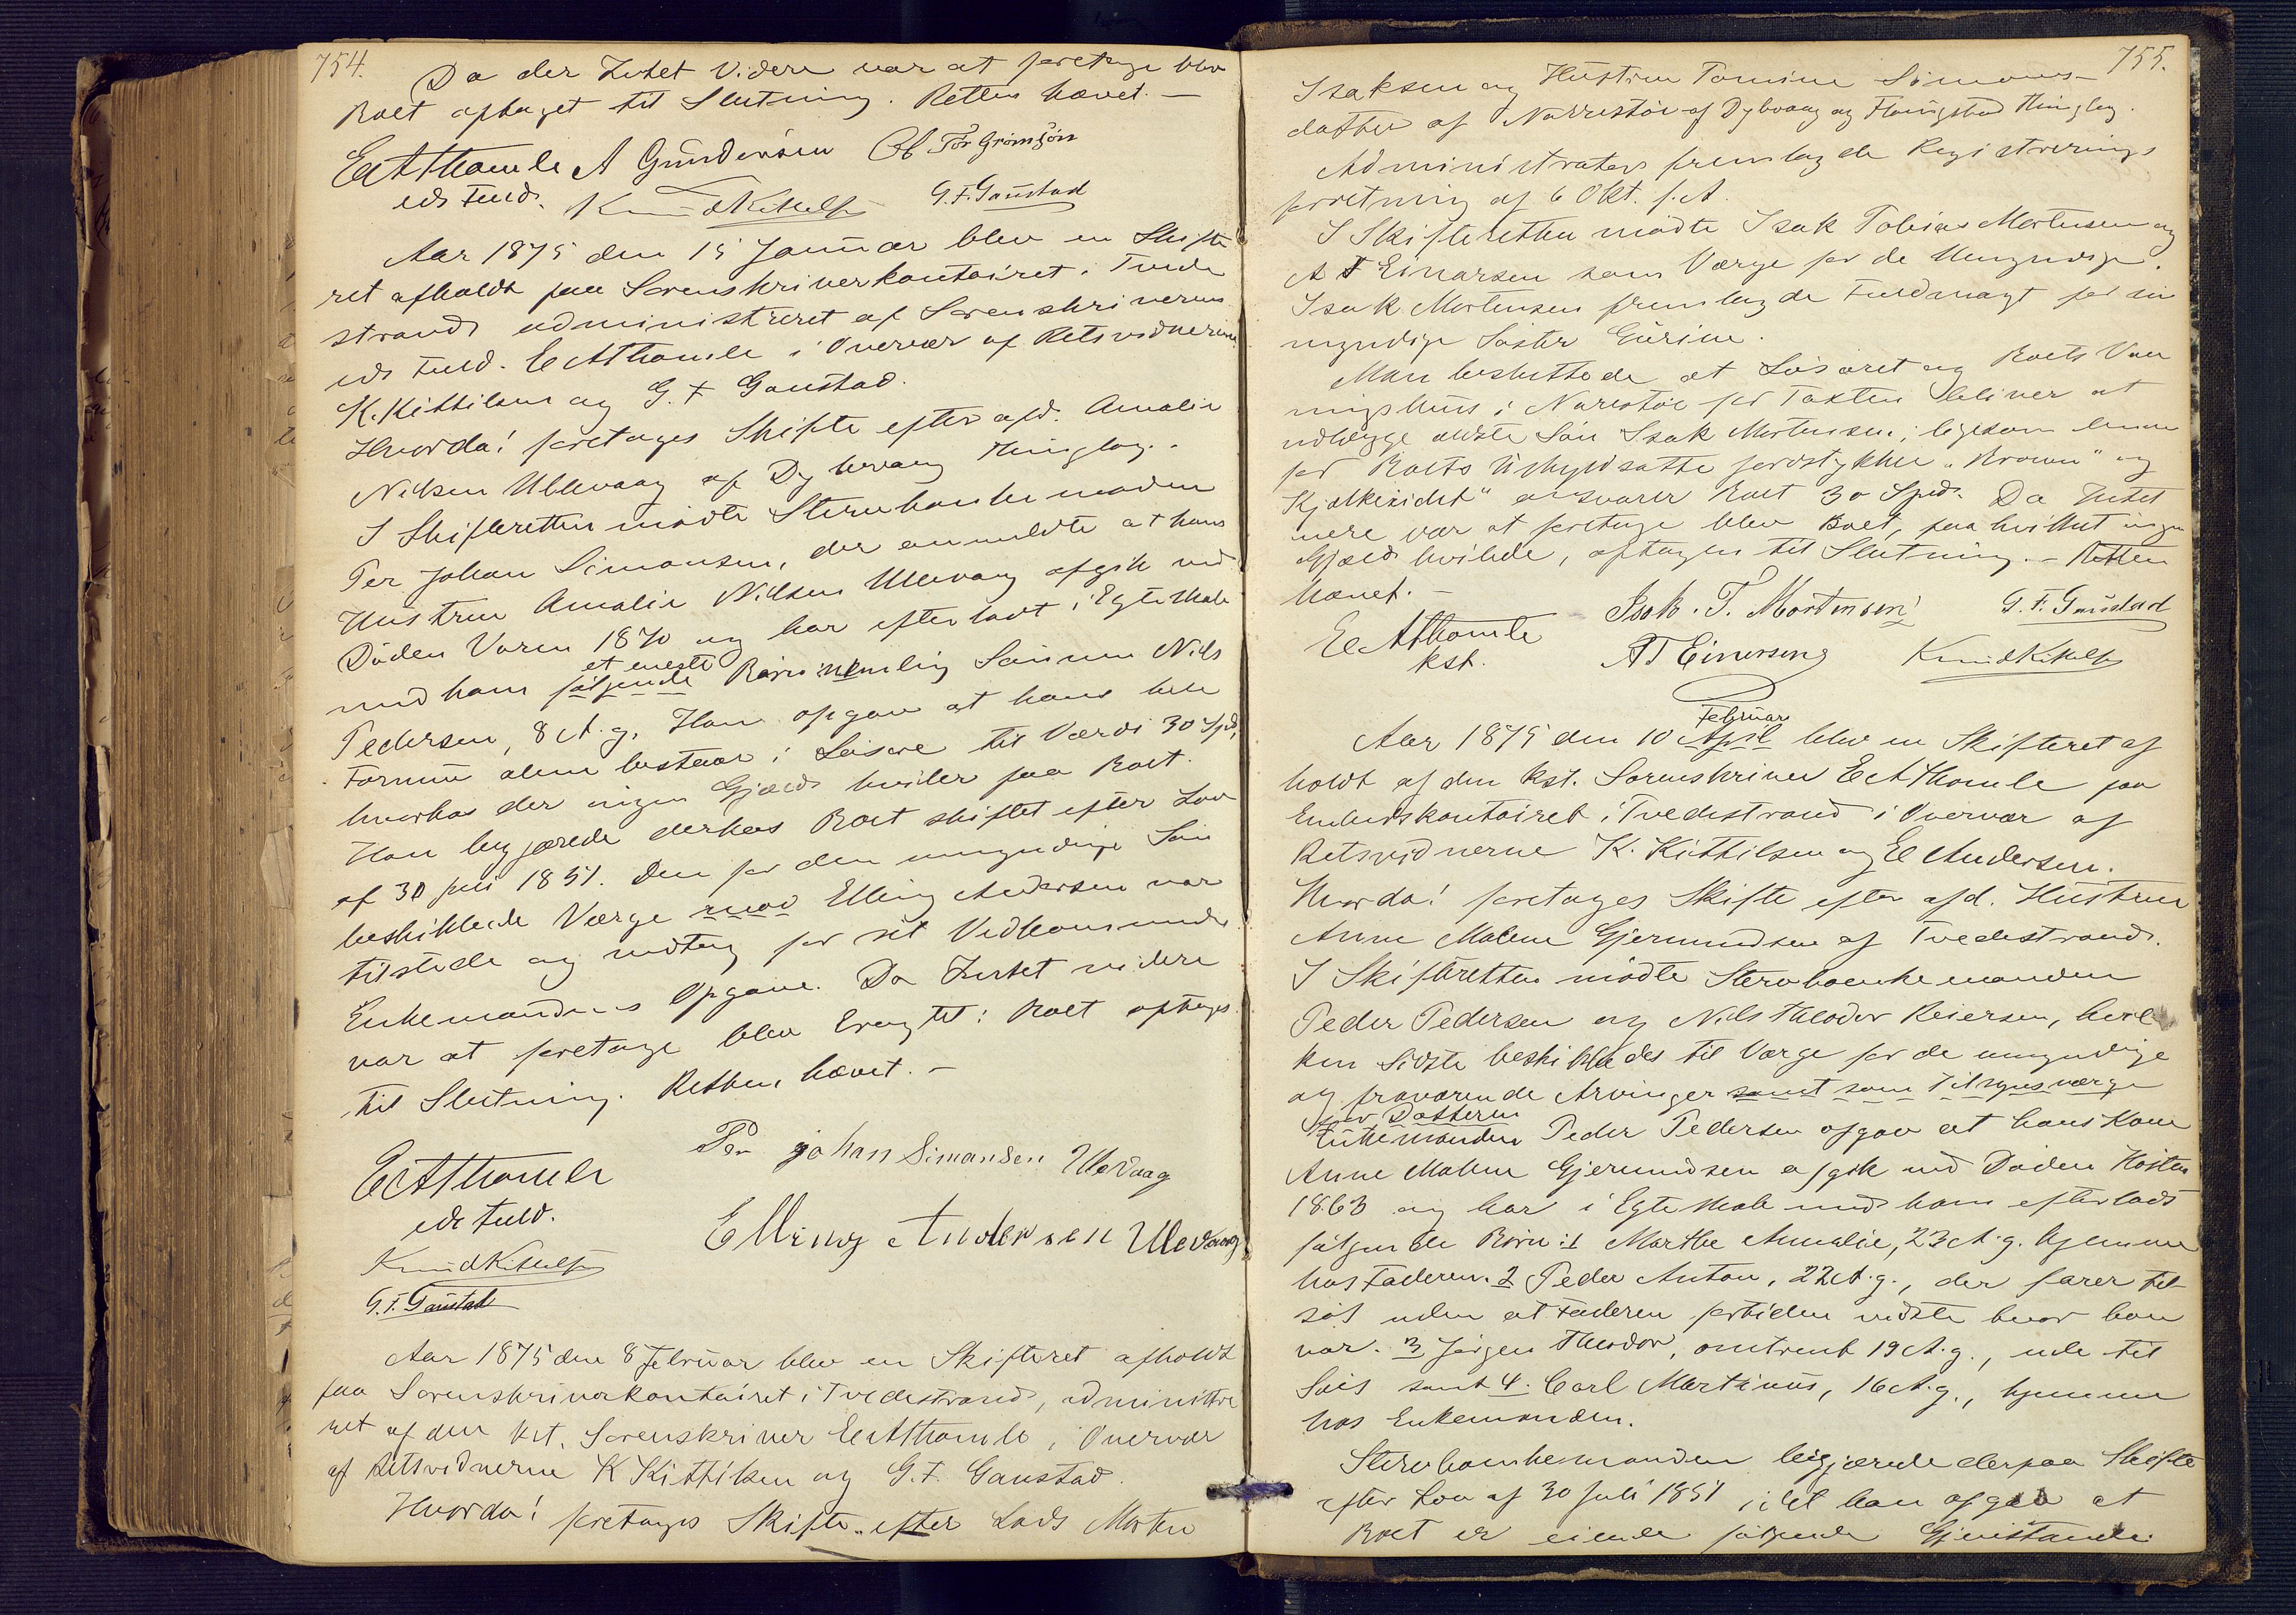 754.
Da der Intet Videre var at foretage blev
Boet optaget til Slutning. Retten hævet. —
E A Thomle A Gundersen Ol. Tor Grømsön
eds Fuld. Knud Kittilsen G. F. Gaustad
Aar 1875 den 15 Januar blev en Skifte
ret afholdt paa Sorenskriverkontoiret i Tvede
strand administreret af Sorenskriverens
eds Fuld. E A Thomle i Overvær af Retsvidnerne
K. Kittilsen og G. F. Gaustad.
Hvorda! foretages Skifte efter afd. Amalie
Nilsen Ulevaag af Dybvaag Thinglag.
I Skifteretten mødte Stervboenkemanden
Per Johan Simonsen, der anmeldte at hans
Hustru Amalie Nilsen Ulevaag afgik ved
Døden Vaaren 1870 og har efterladt i Egteskab
et eneste
med ham følgende Barn nemlig Sønnen Nils
Pedersen, 8 A. g. Han opgav at hans hele
Formue alene bestaar i Løsøre til Værdi 30 Spd,
hvorhos der ingen Gjæld hviler paa Boet.
Han begjærede derhos Boet skiftet efter Lov
af 30 Juli 1851. Den for den umyndige Søn
beskikkede Værge Elling Andersen var
tilstede og vedtog for sit Vedkommende
Enkemandens Opgave. Da Intet videre
var at foretage blev Eragtet: Boet optages
til Slutning. Retten hævet. —
E A Thomle
eds Fuld.
Per Johan Simonsen Ulevaag
Elling Andersen Ulevaag
Knud Kittilsen
G. F. Gaustad
Aar 1875 den 8 Februar blev en Skifteret afholdt
paa Sorenskriverkontoiret i Tvedestrand, administre
ret af den kst. Sorenskriver E A Thomle, i Overvær
af Retsvidnerne K Kittilsen og G. F. Gaustad.
Hvorda! foretages Skifte efter Lods Morten
755.
Isaksen og Hustru Tomine Simons-
datter af Narrestøe af Dybvaag og Flaugstad Thinglag.
Administrator fremlagde Registrerings
forretning af 6 Okt. f. A.
I Skifteretten mødte Isak Tobias Mortensen og
A T Einarsen som Værge for de Umyndige.
Isak Mortensen fremlagde Fuldmagt fra sin
myndige Søster Gurine.
Man besluttede at Løsøret og Boets Vaa
ningshuus i Narestøe for Taxten bliver at
udlægge ældste Søn Isak Mortensen; ligesom denne
for Boets Uskyldsatte Jordstykker "Broen" og
Kjølkevigt" ansvarer Boet 30 Spd. Da Intet
mere var at foretage blev Boet, paa hvilket ingen
Gjæld hvilede, optagen til Slutning. — Retten
hævet. —
E A Thomle
kst.
Isak. T. Mortensen
A T Einersen
G. F. Gaustad
Knud Kittilsen
Februar
Aar 1875 den 10 April blev en Skifteret af
holdt af den kst. Sorenskriver E A Thomle paa
Embedskontoiret i Tvedestrand i Overvær af
Retsvidnerne K. Kittilsen og E Andersen.
Hvorda! foretages Skifte efter afd. Hustru
Anne Malene Gjermundsen af Tvedestrand.
I Skifteretten mødte Stervboenkemanden
Peder Pedersen og Nils Theodor Reiersen, hvil
ken Sidste beskikkedes til Værge for de umyndige
og fraværende Arvinger samt som Tilsynsværge
for Datteren
Enkemanden Peder Pedersen opgav at hans Kone
Anne Malene Gjermundsen afgik ved Døden Høsten
1863 og har i Egteskab med ham efterladt
følgende Børn: 1 Marthe Amalie, 23 A. g. hjemme
hos Faderen. 2 Peder Anton, 22 A. g., der farer til-
søs uden at Faderen fortiden vidste hvor han
var. 3 Jørgen Theodor, omtrent 19 A. g., ude til
Søes samt 4. Carl Martinus, 16 A. g., hjemme
hos Enkemanden.
Stervboenkemanden begjærede derpaa Skifte
efter Lov af 30 Juli 1851, idet han opgav at
Boet er eiende følgende Gjenstande: